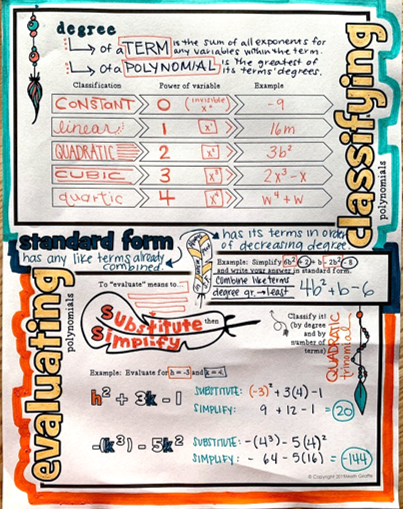 degree
of a TERM is the sum of all exponents for any variables within the term.
of a POLYNOMIAL is the greatest of its terms' degrees.
Classification Power of variable Example
CONSTANT 0 (invisible x⁰) -9
linear 1 x¹ 16m
QUADRATIC 2 x² 3b²
CUBIC 3 x³ 2x³-x
quartic 4 x⁴ w⁴+w
classifying
polynomials
standard form
has any like terms already combined.
has its terms in order of decreasing degree
Example: Simplify 6b² + 2 + b - 2b² - 8
and write your answer in standard form.
Combine like terms
degree gr. → least
4b² + b - 6
Classify it!
(by degree
and by
number of
terms)
QUADRATIC
trinomial
evaluating
polynomials
To "evaluate" means to...
Substitute then
Simplify
Example: Evaluate for h = -3 and k = 4.
h² + 3k - 1
SUBSTITUTE: (-3)² + 3(4) - 1
SIMPLIFY: 9 + 12 - 1 = 20
-(k³) - 5k²
SUBSTITUTE: -(4³) - 5(4)²
SIMPLIFY: - 64 - 5(16) = -144
© Copyright 2019 Math Giraffe